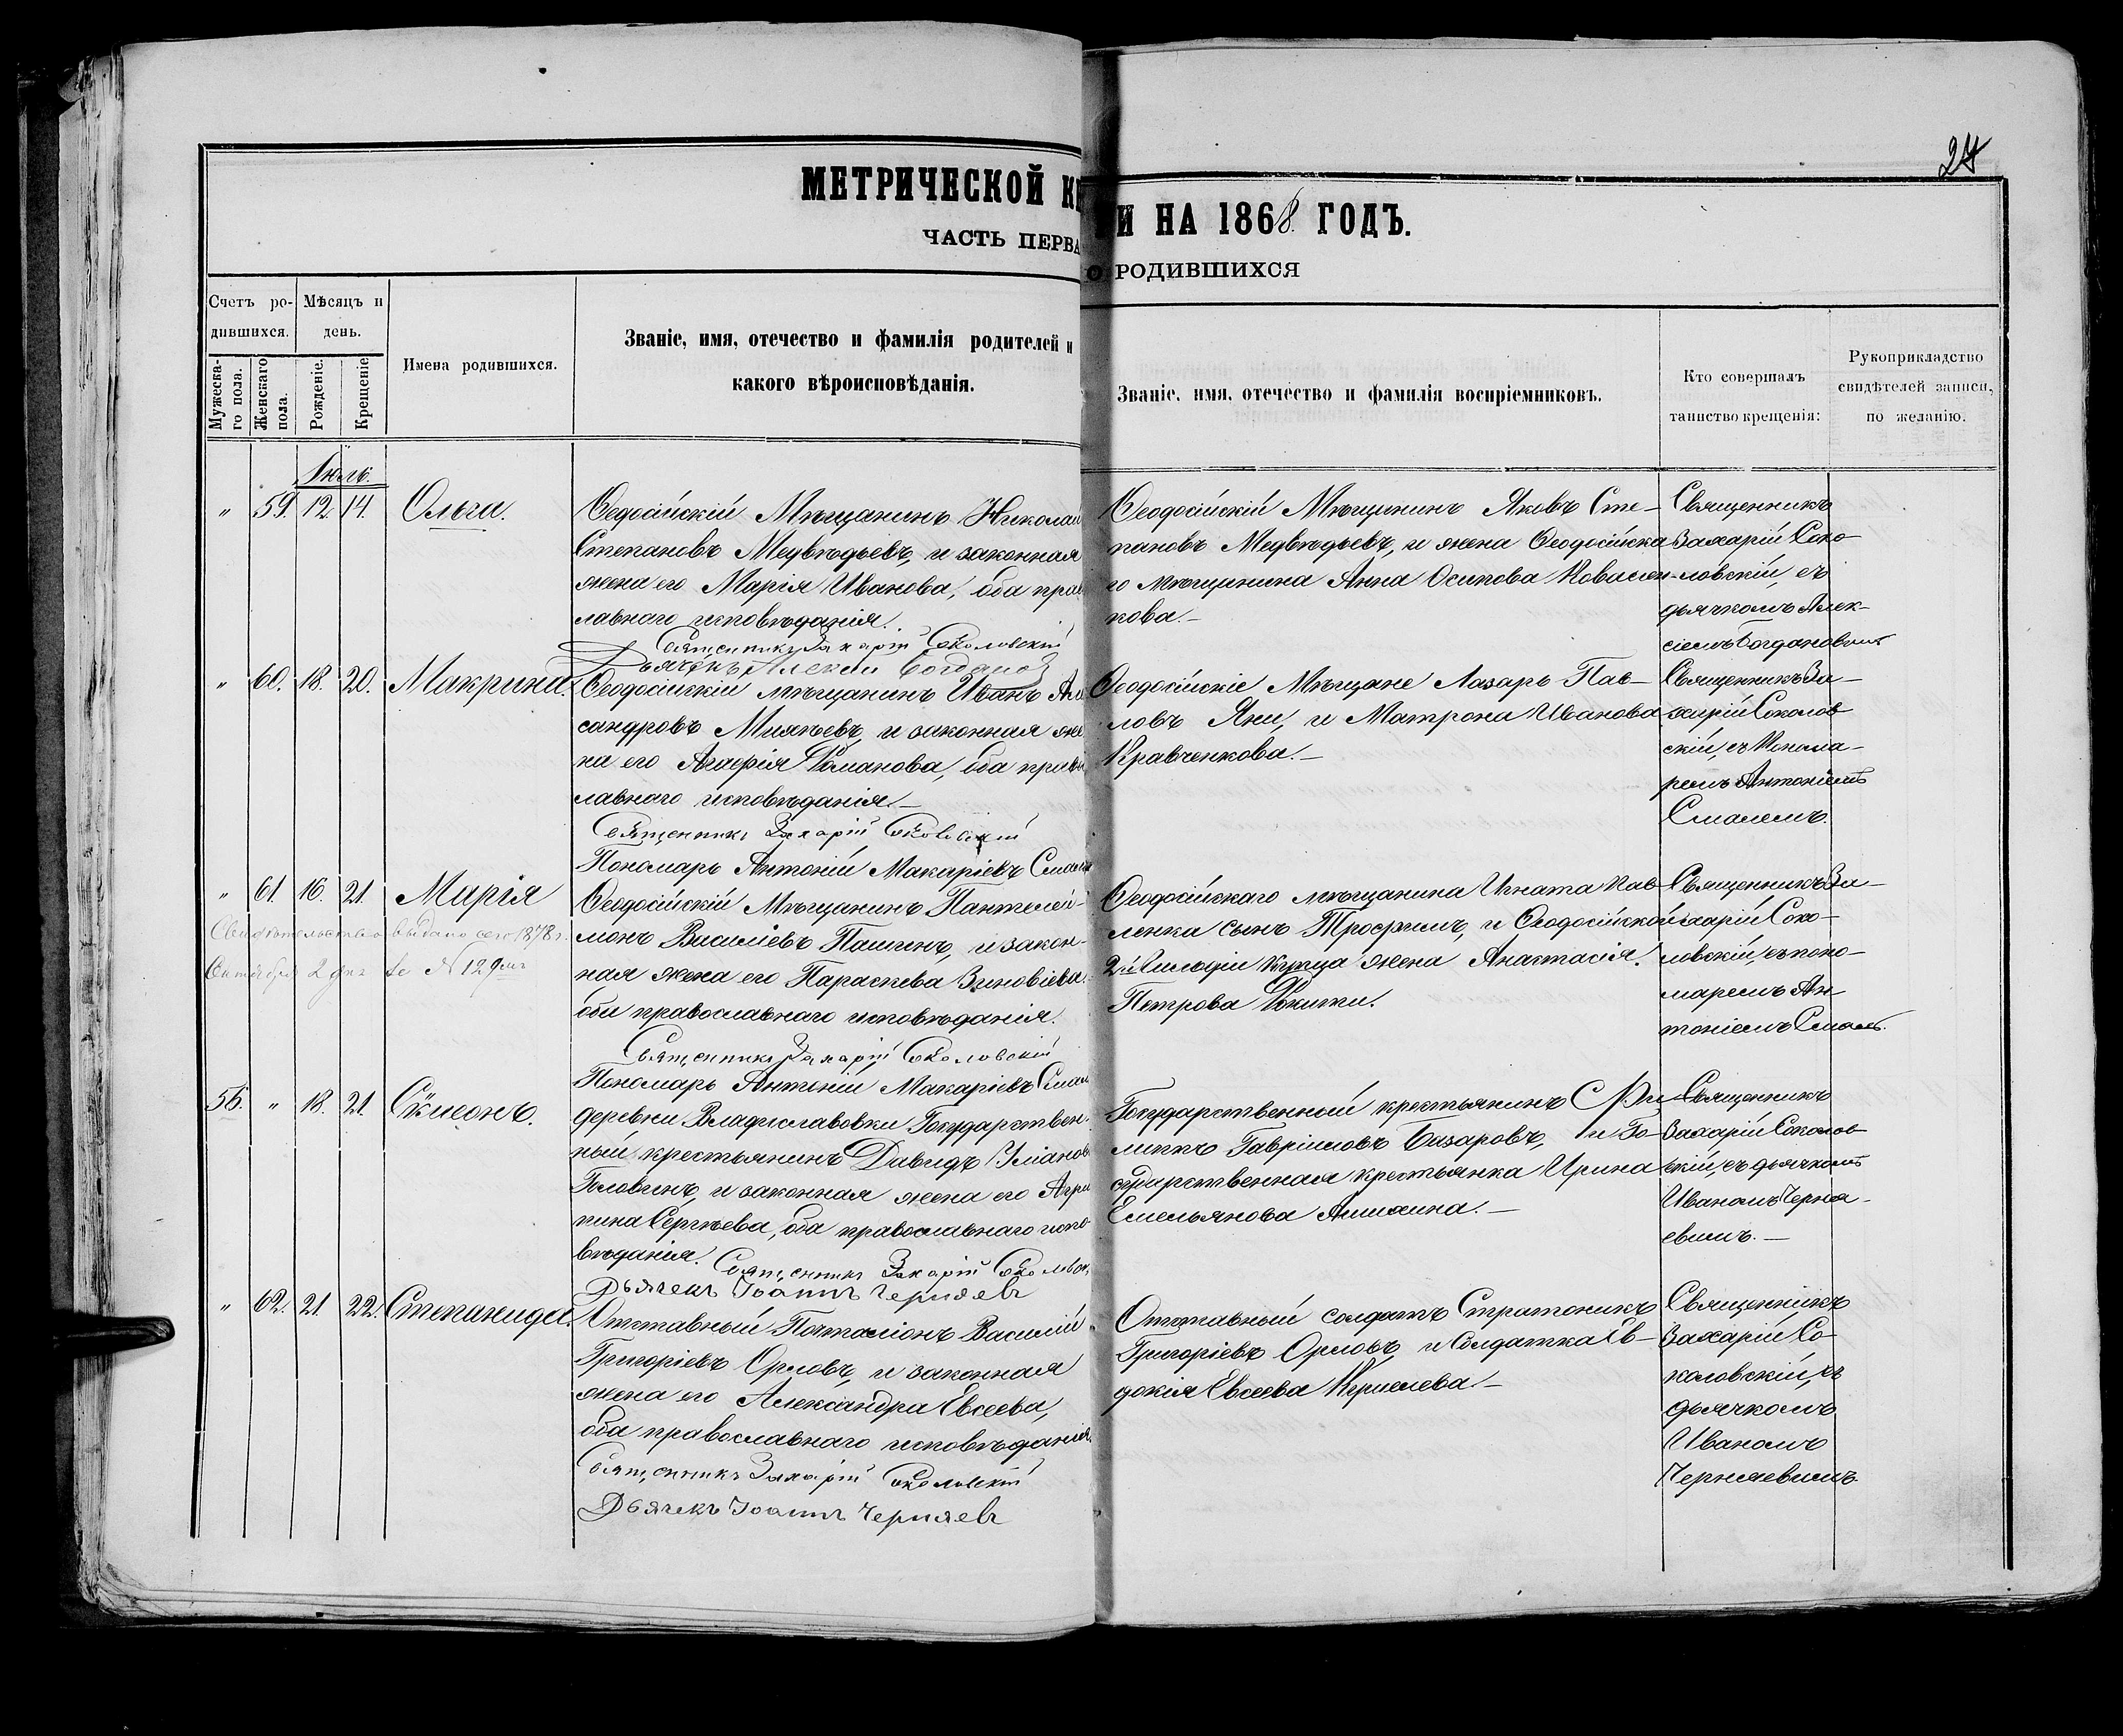 24
МЕТРИЧЕСКОЙ КН
И НА 1868 ГОДЪ.
ЧАСТЬ ПЕРВА
О РОДИВШИХСЯ
Счетъ ро-
дившихся.
Мѣсяцъ и
день.
Мужеска-
го пола.
Женскаго
пола.
Рожденіе.
Крещеніе
Имена родившихся.
Званіе, имя, отечество и фамилія родителей и
какого вѣроисповѣданія.
Званіе, имя, отечество и фамилія воспріемниковъ.
Кто совершалъ
таинство крещенія:
Рукоприкладство
свидѣтелей записи,
по желанію.
Іюль.
" 59. 12. 14. Ольга.
Ѳеодосійскій Мѣщанинъ Николай
Степановъ Медвѣдьевъ, и законная
жена его Марія Иванова, оба прав
лавнаго исповѣданія.
Священникъ Захарій Соколовскій
Дьячекъ Алексій Богданов
Ѳеодосійскій Мѣщанинъ Яковъ Сте-
пановъ Медвѣдьевъ, и жена Ѳеодосійска
го мѣщанина Анна Осипова Ковален-
кова.-
Священникъ
Захарій Соко-
ловскій, съ
дьячкомъ Алек-
сіемъ Богдановымъ
" 60. 18. 20. Макрина.
Ѳеодосійскій мѣщанинъ Иванъ Але
сандровъ и законная же
на его Агафія Романова, оба право
лавнаго исповѣданія.-
Священникъ Захарій Соколовскій
Пономарь Антоній Макаріевъ
Ѳеодосійскіе Мѣщане Лазарь Пав-
ловъ Яни, и Матрона Иванова
Кравченкова.-
Священникъ За-
харій Соколов
скій, съ Понома-
ремъ Антоніемъ
" 61. 16. 21. Марія
Свидѣтельство выдано сего 1878 г.
Октября 2 дня за № 129мъ
Ѳеодосійскій Мѣщанинъ Пантелей-
монъ Василіевъ Пашинъ, и закон-
ная жена его Параскева Зиновіева.
оба православнаго исповѣданія.
Священникъ Захарій Соколовскій
Пономарь Антоній Макаріевъ
Ѳеодосійскаго мѣщанина Игната Пав-
ленка сынъ Трофимъ, и Ѳеодосійской
2й Гильдіи купца жена Анастасія
Петрова
Священникъ За-
харій Соко-
ловскій, съ поно-
маремъ Ан-
тоніемъ
56. " 18. 21. Сѵмеонъ.
деревни Владиславовки Государствен-
ный крестьянинъ Давидъ
Головинъ, и законная жена его Агри
пина Сергѣева, оба православнаго испо
вѣданія. Священникъ Захарій Соколовск
Дьячекъ Іоаннъ Черняевъ
Государственный крестьянинъ
Гавріиловъ Базаровъ, и Го-
сударственная крестьянка Ирина
Емельянова
Священникъ
Захарій Соколов
скій, съ дьячкомъ
Иваномъ Черня-
евымъ.-
" 62. 21. 22. Степанида.
Отставный Почталіонъ Василій
Григоріевъ Орловъ, и законная
жена его Александра Евсеева,
оба православнаго исповѣданія.
Священникъ Захарій Соколовскій
Дьячекъ Іоаннъ Черняевъ
Отставный солдатъ Стратоникъ
Григоріевъ Орловъ, и Солдатка Ев-
докія Евсеева Киріелева.-
Священникъ
Захарій Со-
коловскій, съ
дьячкомъ
Иваномъ
Черняевымъ.